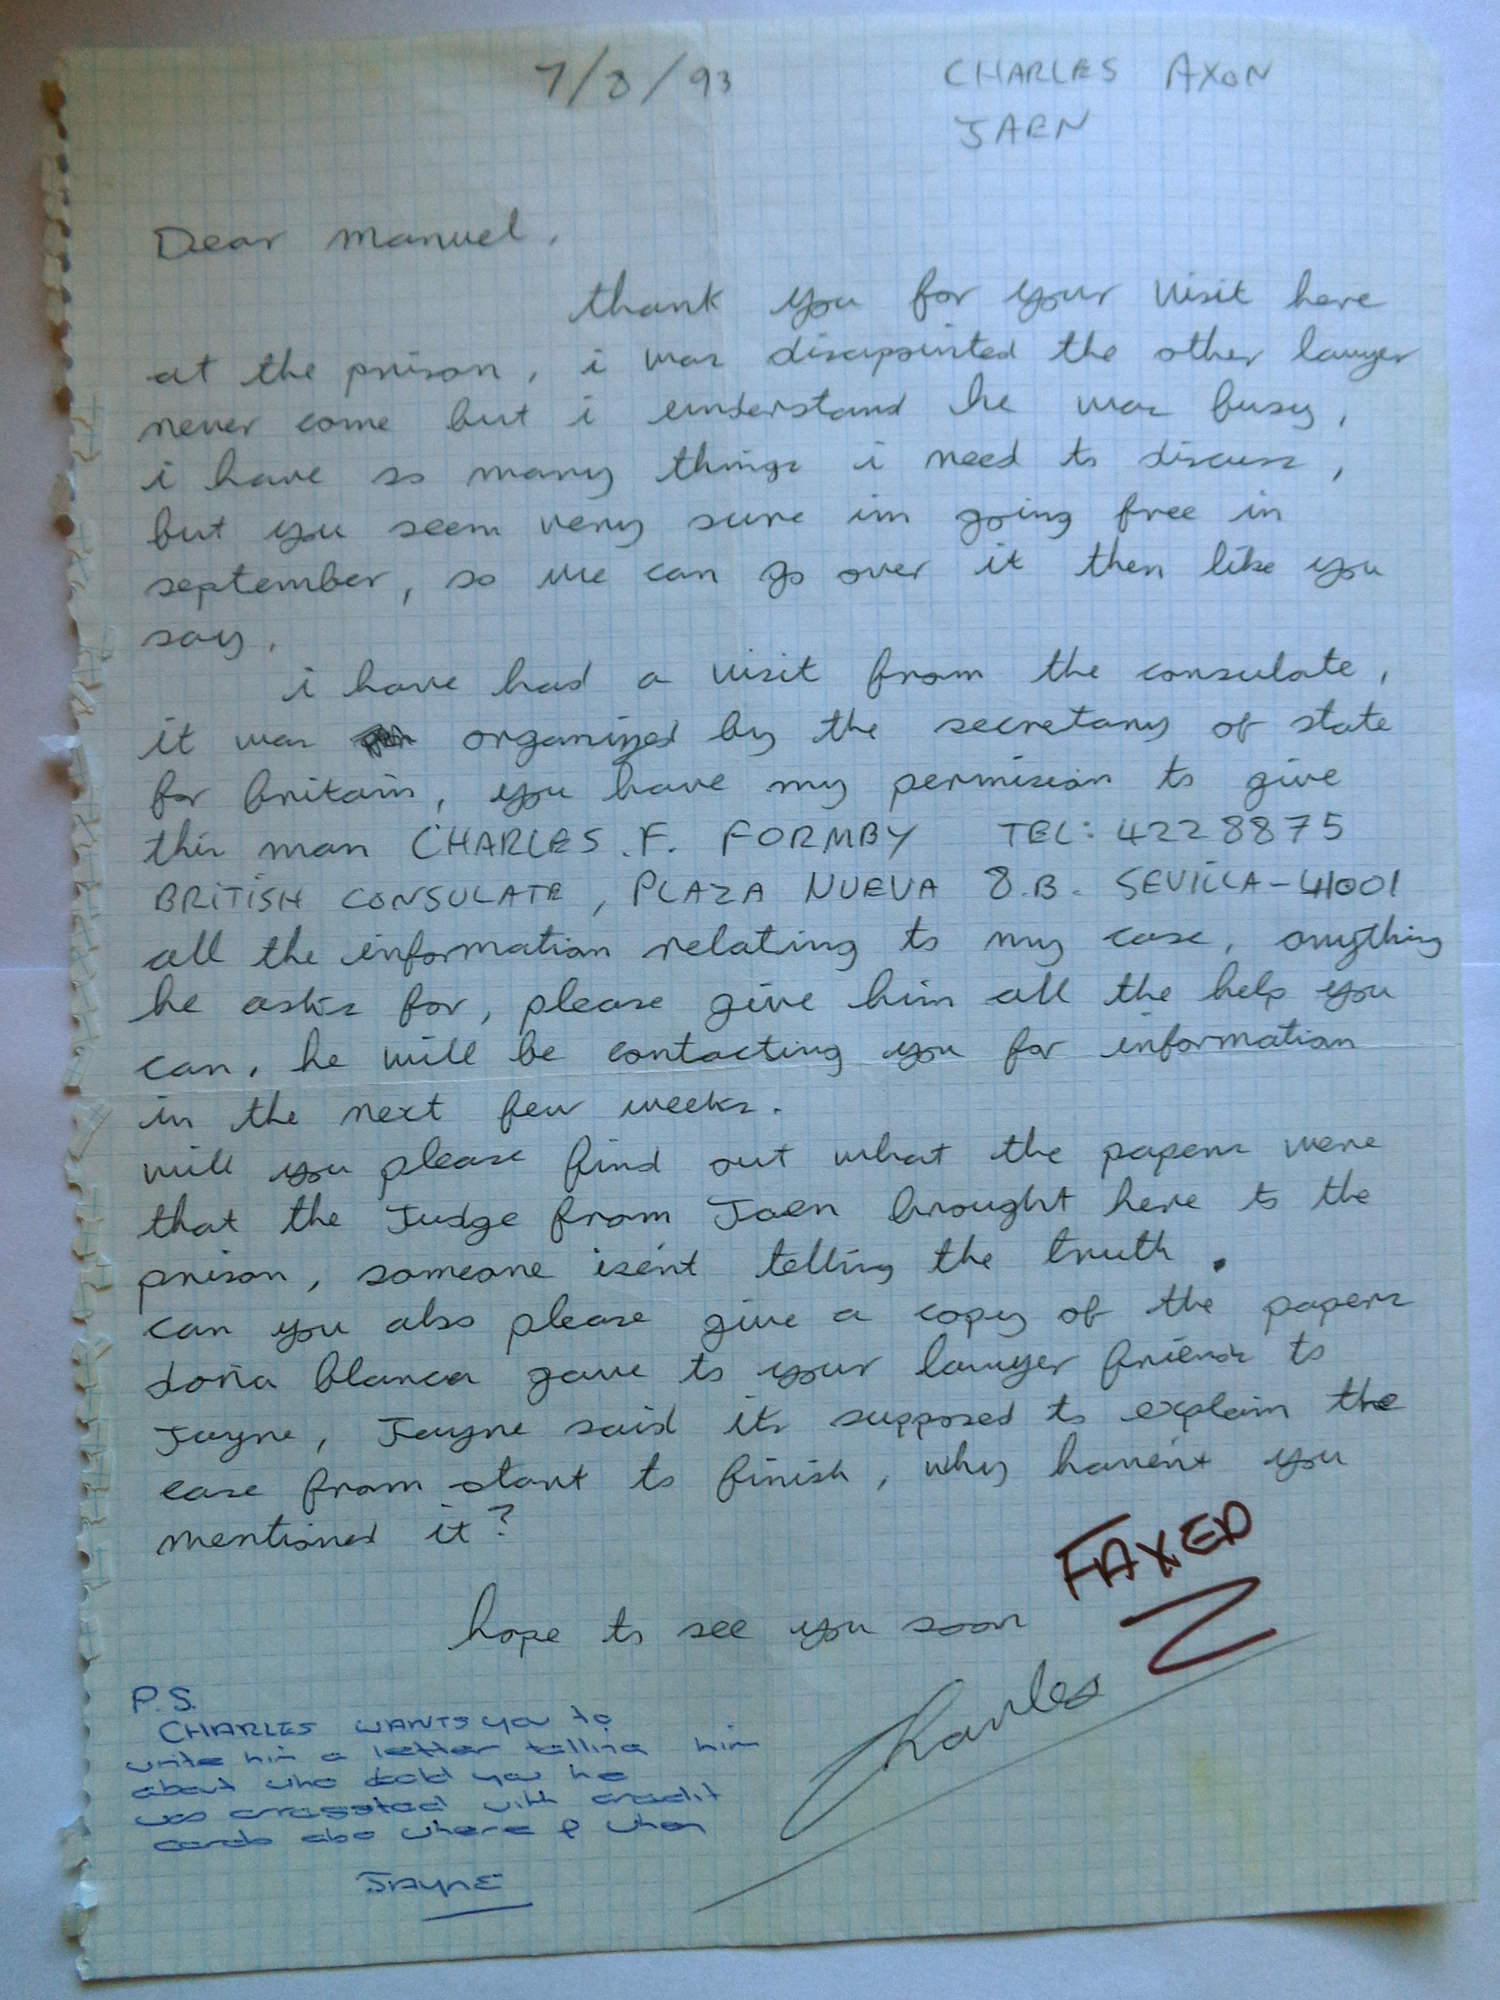 7/8/93
CHARLES AXON
JAEN
Dear Manuel,
thank you for your visit here
at the prison, i was disapointed the other lawyer
never come but i understand he was busy,
i have so many things i need to discuss,
but you seem very sure im going free in
september, so we can go over it then like you
say.
i have had a visit from the consulate,
it was organized by the secretary of state
for britain, you have my permision to give
this man CHARLES.F. FORMBY TEL: 4228875
BRITISH CONSULATE, PLAZA NUEVA 8.B. SEVILLA-41001
all the information relating to my case, anything
he asks for, please give him all the help you
can, he will be contacting you for information
in the next few weeks.
will you please find out what the papers were
that the Judge from Jaen brought here to the
prison, someone isent telling the truth.
can you also please give a copy of the papers
doña blanca gave to your lawyer friends to
Jayne, Jayne said its supposed to explain the
case from start to finish, why havent you
mentioned it?
hope to see you soon
FAXED
Charles
P.S.
CHARLES WANTS you to
write him a letter telling him
about who told you he
was arrested with credit
cards also where & when
JAYNE